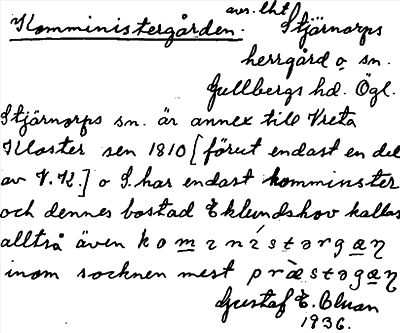 Komministergården. avs. lht Stjärnorps
herrgård o sn.
Gullbergs hd. Ögl.
Stjärnorps sn. är annex till Vreta
Kloster sen 1810 [förut endast en del
av V.K.] o S. har endast komminster
och dennes bostad Eklundshov kallas
alltså även komɪnístərgan
inom socknen mest pràstəgan
Gustaf E.
1936.